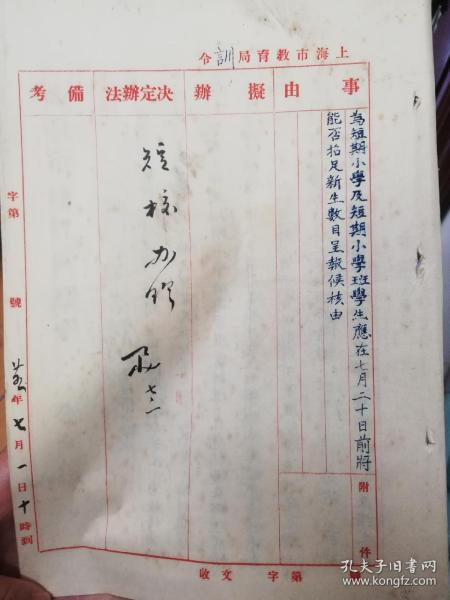 上海市教育局訓令
事由
擬辦
决定辦法
備考
為短期小學及短期小學班學生應在七月二十日前將
能否招足新生數目呈報候核由
附件
短校办
字第號
年七月一日十時到
收文字第號
孔夫子旧书网
www.kongfz.com